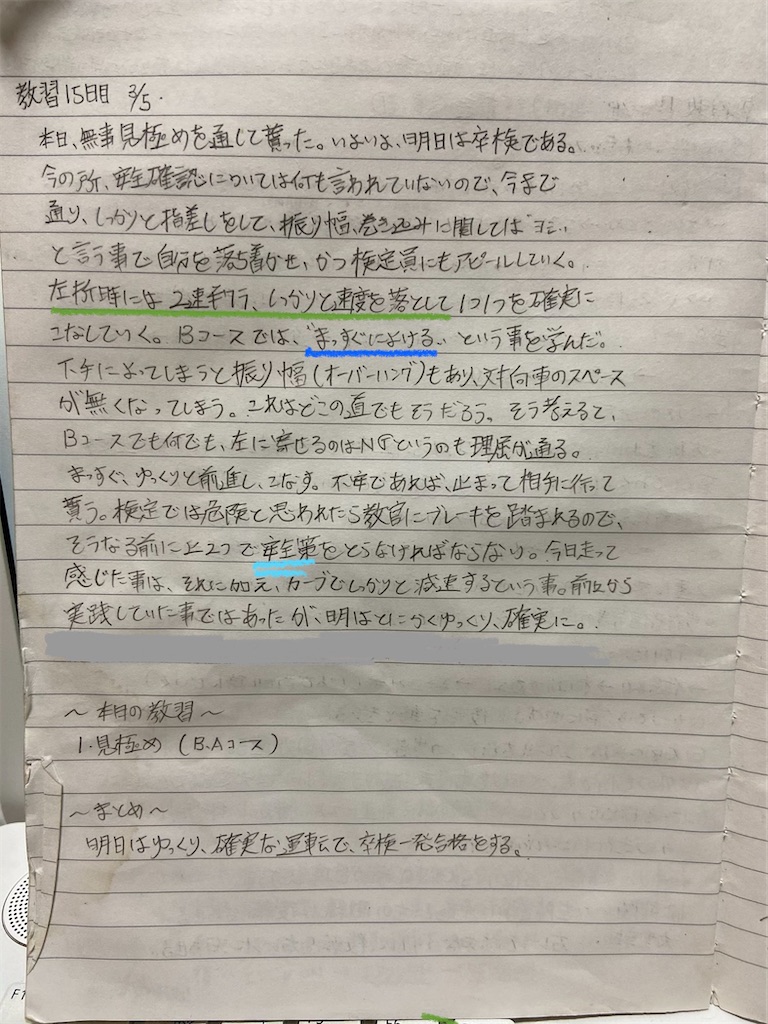 教習15日目 3/5.
本日、無事見極めを通して貰った。いよいよ、明日は卒検である。
今の所、安全確認については何も言われていないので、今まで
通り、しっかりと指差しをして、振り幅、巻き込みに関しては〝ヨシ〟
と言う事で自分を落ち着かせ、かつ検定員にもアピールしていく。
左折時には2速半クラ、しっかりと速度を落として1つ1つを確実に
こなしていく。Bコースでは、〝まっすぐによける〟という事を学んだ。
下手によってしまうと振り幅(オーバーハング)もあり、対向車のスペース
が無くなってしまう。これはどこの道でもそうだろう。そう考えると、
Bコースでも何でも、左に寄せるのはNGというのも理屈が通る。
まっすぐ、ゆっくりと前進し、こなす。不安であれば、止まって相手に行って
貰う。検定では危険と思われたら教官にブレーキを踏まれるので、
そうなる前に止まって安全策をとらなければならない。今日走って
感じた事は、それに加え、カーブでしっかりと減速するという事。前から
実践していた事ではあったが、明はとにかくゆっくり、確実に。
～本日の教習～
1.見極め (B.Aコース)
～まとめ～
明日はゆっくり、確実な運転で、卒検一発合格をする。
F1